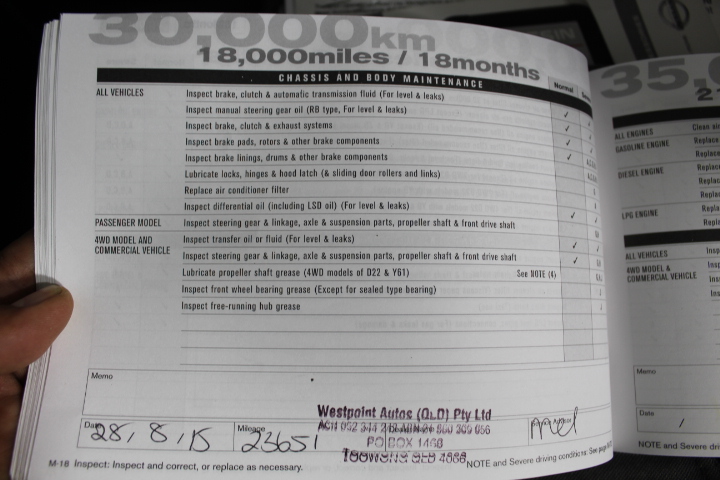 30,000km
18,000miles / 18months
CHASSIS AND BODY MAINTENANCE
Normal
ALL VEHICLES
Inspect brake, clutch & automatic transmission fluid (For level & leaks)
Inspect manual steering gear oil (RB type, For level & leaks)
Inspect brake, clutch & exhaust systems
Inspect brake pads, rotors & other brake components
Inspect brake linings, drums & other brake components
Lubricate locks, hinges & hood latch (& sliding door rollers and links)
Replace air conditioner filter
Inspect differential oil (including LSD oil) (For level & leaks)
PASSENGER MODEL Inspect steering gear & linkage, axle & suspension parts, propeller shaft & front drive shaft
4WD MODEL AND COMMERCIAL VEHICLE
Inspect transfer oil or fluid (For level & leaks)
Inspect steering gear & linkage, axle & suspension parts, propeller shaft & front drive shaft
Lubricate propeller shaft grease (4WD models of D22 & Y61) See NOTE (4)
Inspect front wheel bearing grease (Except for sealed type bearing)
Inspect free-running hub grease
Memo
Westpoint Autos (QLD) Pty Ltd
PO BOX 1468
Date 28/8/15
Mileage 23651
M-18 Inspect: Inspect and correct, or replace as necessary.
NOTE and Severe driving conditions: See
35,
ALL ENGINES
GASOLINE ENGINE
Replace
DIESEL ENGINE
LPG ENGINE
ALL VEHICLES
4WD MODEL & COMMERCIAL VEHICLE
Memo
Date /
NOTE and Severe